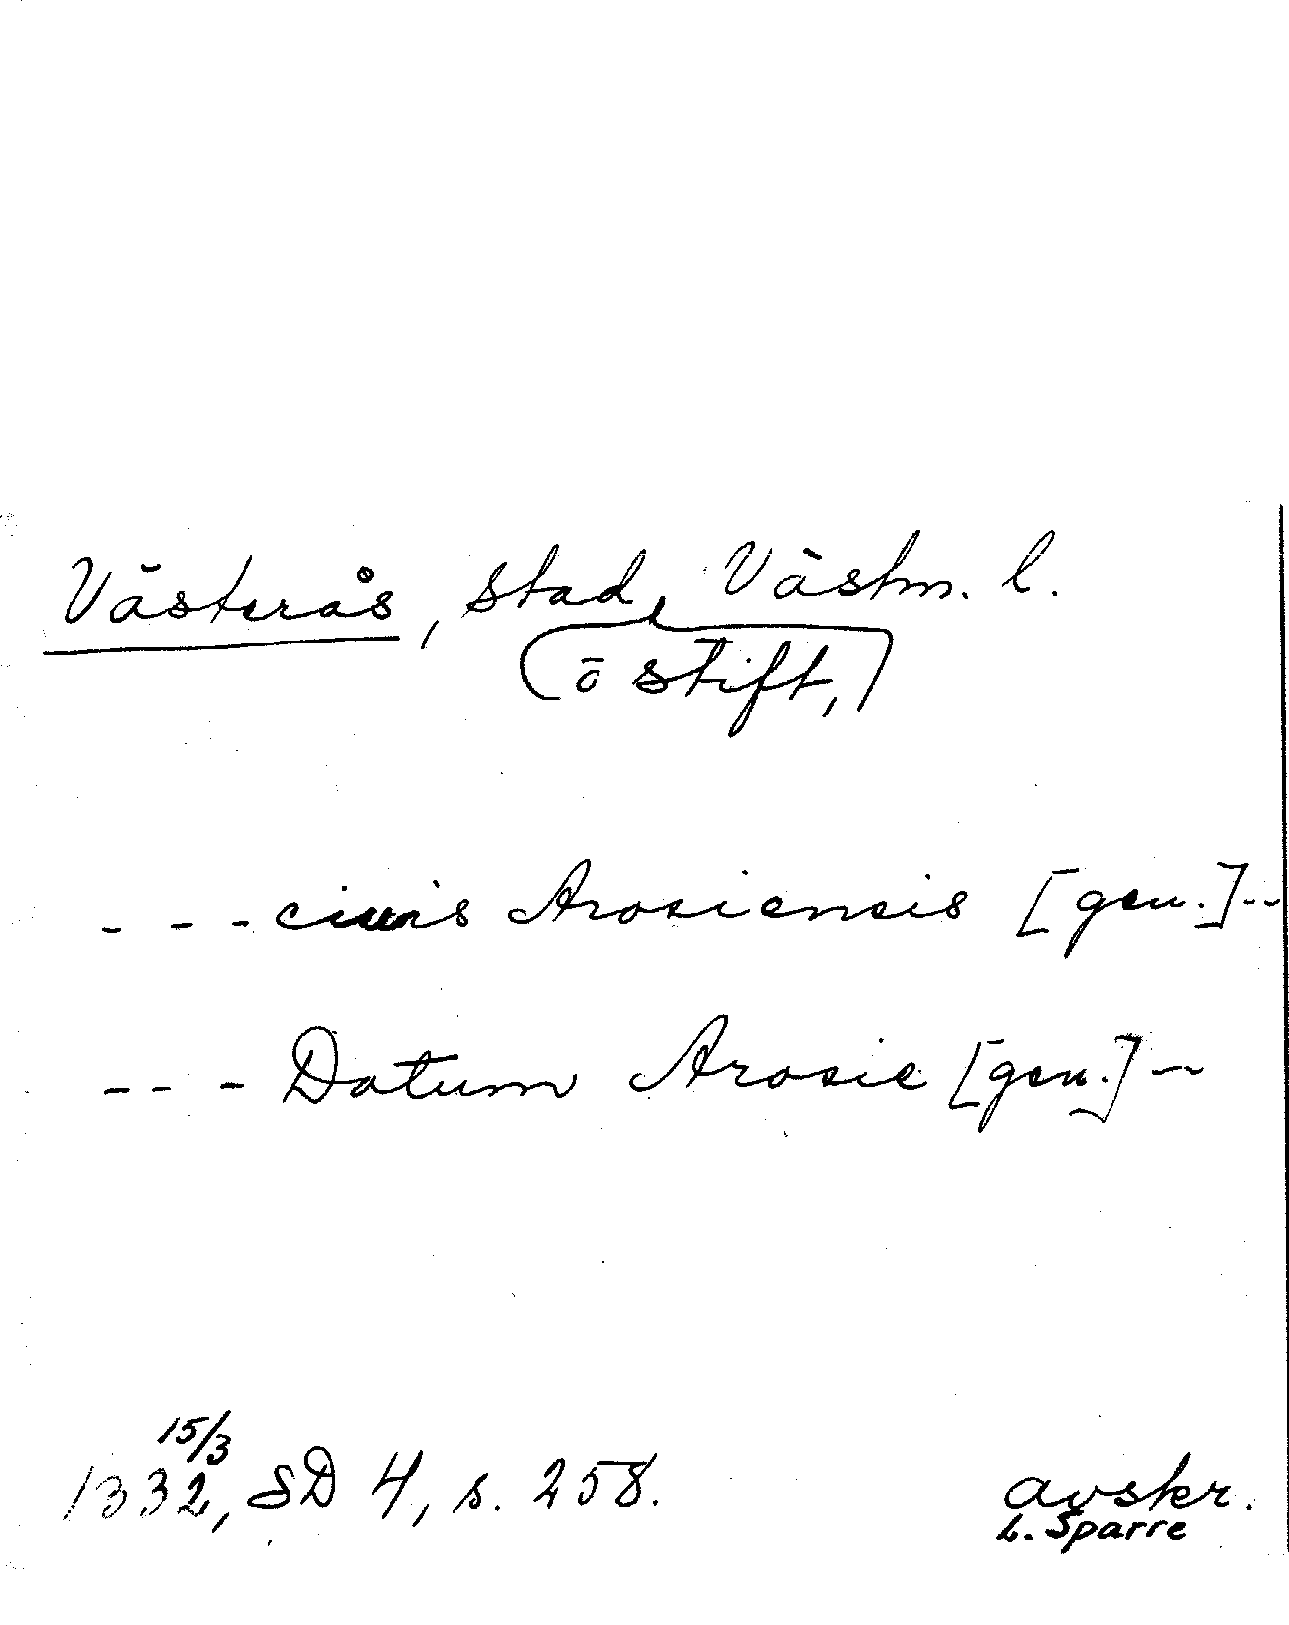 Västerås, stad, Västm. l.
(ō stift,)
- - - ciuis Arosiensis [gen.] --
- - - Datum Arosie [gen.] --
15/3
1332, SD 4, s. 258.
avskr.
L. Sparre